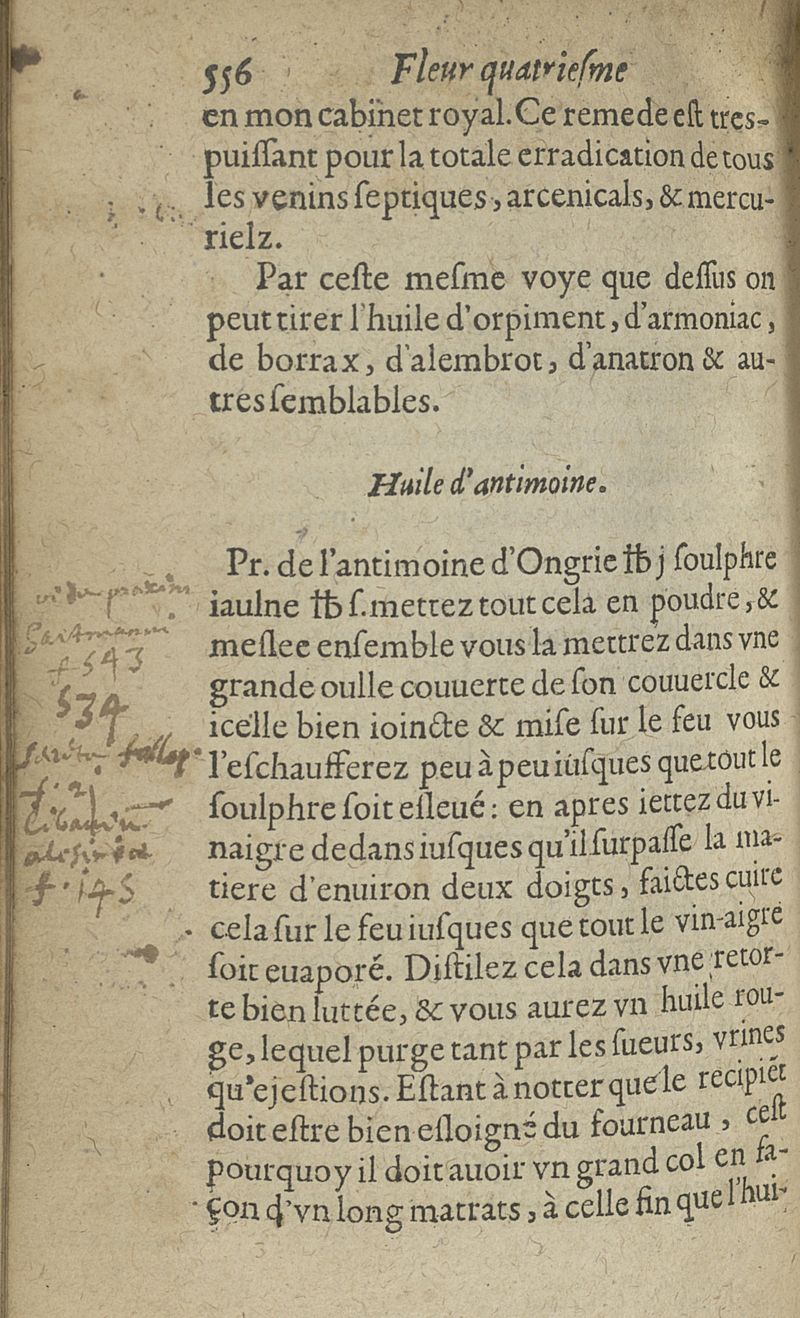 556 Fleur quatrieſme
en mon cabinet royal. Ce remede eſt tres-
puiſſant pour la totale erradication de tous
les venins ſeptiques, arcenicals, & mercu-
rielz.
Par ceſte meſme voye que deſſus on
peut tirer l'huile d'orpiment, d'armoniac,
de borrax, d'alembrot, d'anatron & au-
tres ſemblables.
Huile d'antimoine.
Pr. de l'antimoine d'Ongrie ℔ j ſoulphre
iaulne ℔ ſ. mettez tout cela en poudre, &
meſlee enſemble vous la mettrez dans vne
grande oulle couuerte de ſon couuercle &
icelle bien ioincte & miſe ſur le feu vous
l'eſchaufferez peu à peu iuſques que tout le
ſoulphre ſoit eſleué: en apres iettez du vi-
naigre dedans iuſques qu'il ſurpaſſe la ma-
tiere d'enuiron deux doigts, faictes cuire
cela ſur le feu iuſques que tout le vin-aigre
ſoit euaporé. Diſtilez cela dans vne retor-
te bien luttée, & vous aurez vn huile rou-
ge, lequel purge tant par les ſueurs, vrines
qu'ejeſtions. Eſtant à notter que le recipiét
doit eſtre bien eſloigné du fourneau, ceſt
pourquoy il doit auoir vn grand col en fa-
çon d'vn long matrats, à celle fin que l'hui-
543
534
f. 145